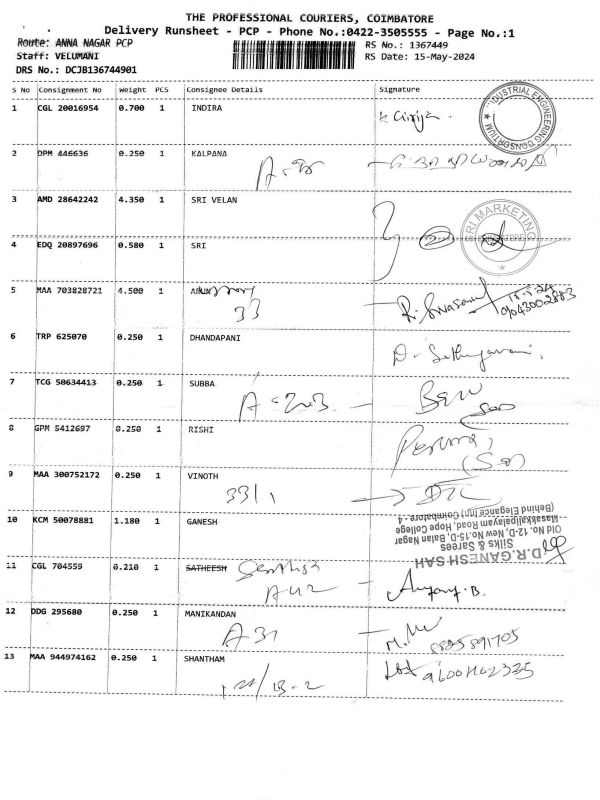 THE PROFESSIONAL COURIERS, COIMBATORE
Delivery Runsheet - PCP - Phone No.:0422-3505555 - Page No.:1
Route: ANNA NAGAR PCP
RS No.: 1367449
Staff: VELUMANI
RS Date: 15-May-2024
DRS No.: DCJB136744901
S No Consignment No Weight PCS Consignee Details Signature
1 CGL 20016954 0.700 1 INDIRA
INDUSTRIAL ENGINEERING CONSORTIUM
2 DPM 446636 0.250 1 KALPANA
3 AMD 28642242 4.350 1 SRI VELAN
SRI MARKETING
4 EDQ 20897696 0.580 1 SRI
5 MAA 703828721 4.500 1 ARUN
33
9043002883
6 TRP 625070 0.250 1 DHANDAPANI
7 TCG 50634413 0.250 1 SUBBA
A-203
8 GPM 5412697 0.250 1 RISHI
9 MAA 300752172 0.250 1 VINOTH
33/1
10 KCM 50078881 1.180 1 GANESH
D.R.GANESH SAH
Silks & Sarees
Old No. 12-D, New No.15-D, Balan Nagar
Masakkalipalayam Road, Hope College
(Behind Elegance Inn) Coimbatore - 4
11 CGL 704559 0.210 1 SATHEESH
12 DDG 295680 0.250 1 MANIKANDAN
A 31
8825891705
13 MAA 944974162 0.250 1 SHANTHAM